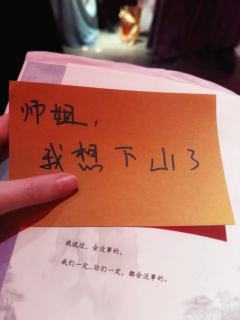 师姐，
我想下山了
我说过，会没事的。
我们一定…你们一定，都会没事的。